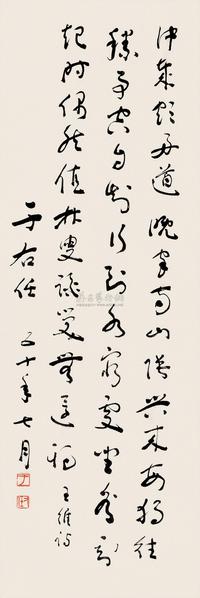 中岁颇好道晚家南山陲兴来每独往
胜事空自知行到水穷处坐看云
起时偶然值林叟谈笑无还期 王维诗
于右任 五十年七月